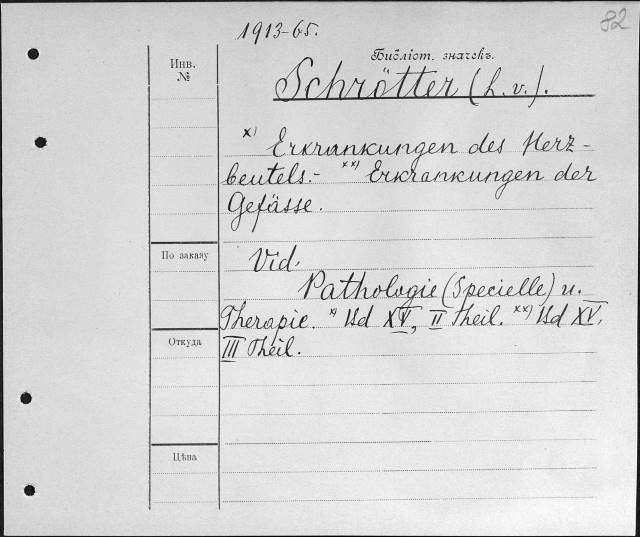 82
1913-65.
Библіот. значекъ.
Инв.
№
Schrötter (L. v.).
x) Erkrankungen des Herz-
beutels.- xx) Erkrankungen der
Gefässe.
По заказу
Vid.
Pathologie (Specielle) u.
Therapie. x) Bd XV, II Theil. xx) Bd XV,
Откуда
III Theil.
Цѣна